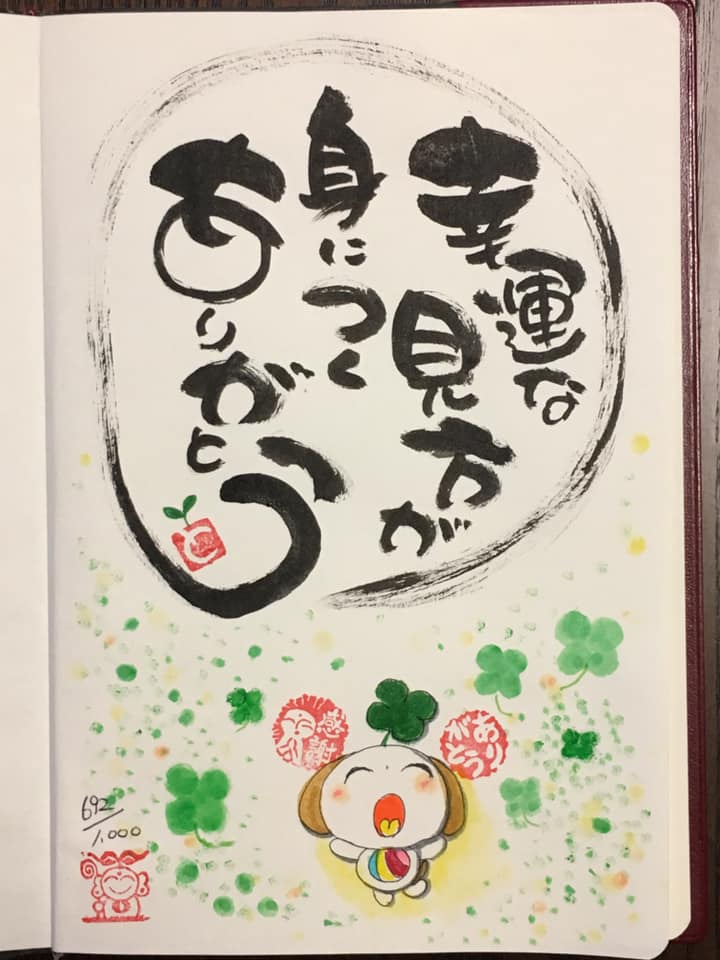 幸運な
見方が
身につく
ありがとう
感謝
ありがとう
692/1,000